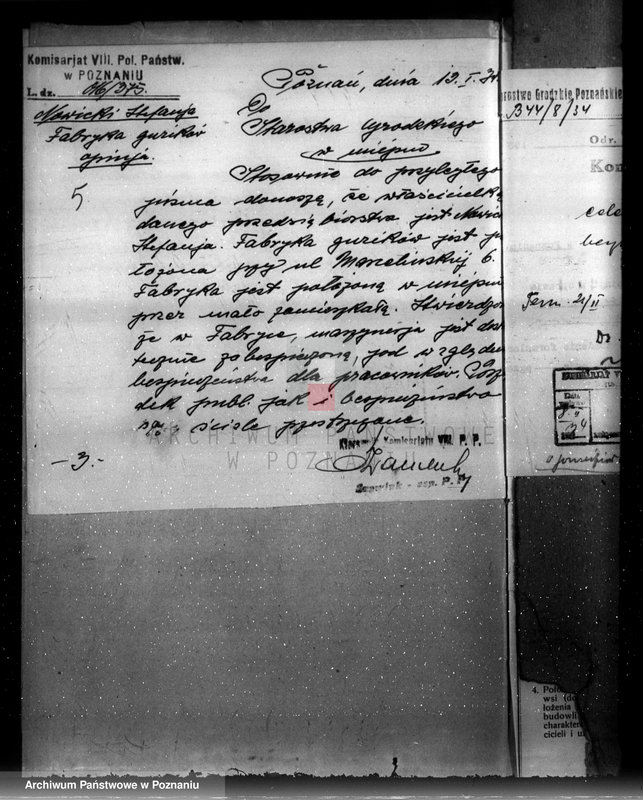 Komisarjat VIII. Pol. Państw.
w POZNANIU
L. dz. 616/375.
Nowicki Stefanja
Fabryka guzików
opinja.
5
Poznań, dnia 12. I. 34
Do
Starostwa Grodzkiego
w miejscu
Stosownie do przyległego
pisma donoszę, że właścicielką
danego przedsiębiorstwa jest Nowic
Stefanja. Fabryka guzików jest po
łożona przy ul Marcelińskiej 6.
Fabryka jest położoną w miejscu
przez mało zamieszkałą. Stwierdzon
że w Fabryce, maszynerja jest dos
tecznie zabezpieczoną, pod względem
bezpieczeństwa dla pracowników. Porzą
dek publ. jak i bezpieczeństwa
są ściśle przestrzegane.
Kierownik Komisarjatu VIII. P. P.
w
P. P.
– 3. –
ARCHIWUM PAŃSTWOWE
W POZNANIU
Starostwo Grodzkie Poznańskie
B344/8/34
Odr.
Kom
cele
bezp
Term. 21/II
Do
34
4. Poło
wsi (do
łożenia
budowli
charakter
cicieli i u
Archiwum Państwowe w Poznaniu